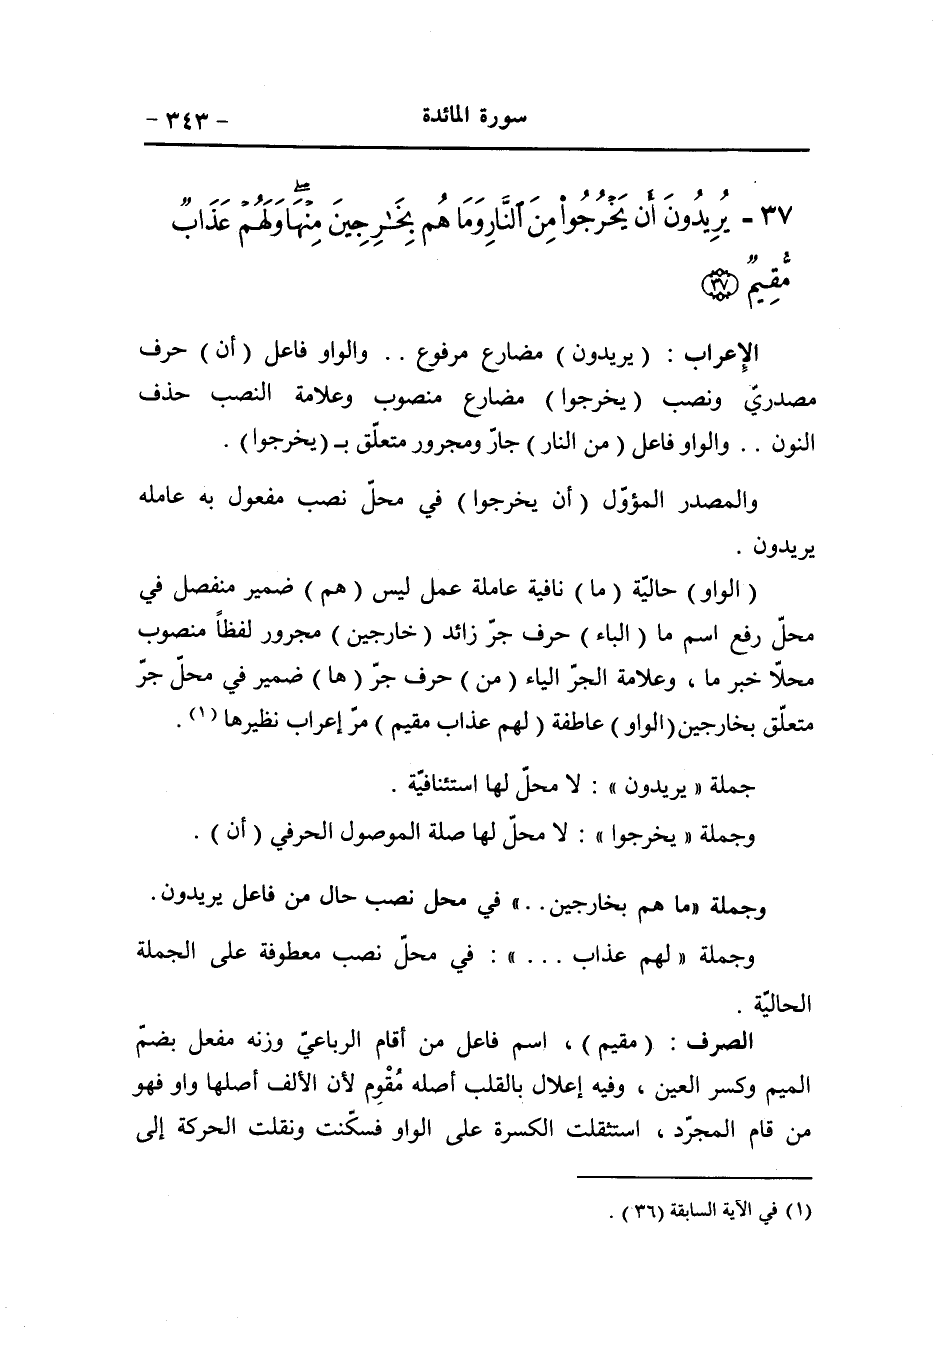 سورة المائدة - ٣٤٣ -
٣٧ - يُرِيدُونَ أَن يَخْرُجُوا۟ مِنَ ٱلنَّارِ وَمَا هُم بِخَـٰرِجِينَ مِنْهَا ۖ وَلَهُمْ عَذَابٌ
مُّقِيمٌ (٣٧)
الإعراب : ( يريدون ) مضارع مرفوع . . والواو فاعل ( أن ) حرف
مصدريّ ونصب ( يخرجوا ) مضارع منصوب وعلامة النصب حذف
النون . . والواو فاعل ( من النار ) جارّ ومجرور متعلّق بـ ( يخرجوا ) .
والمصدر المؤوّل ( أن يخرجوا ) في محلّ نصب مفعول به عامله
يريدون .
( الواو ) حاليّة ( ما ) نافية عاملة عمل ليس ( هم ) ضمير منفصل في
محلّ رفع اسم ما ( الباء ) حرف جرّ زائد ( خارجين ) مجرور لفظاً منصوب
محلّا خبر ما ، وعلامة الجرّ الياء ( من ) حرف جرّ ( ها ) ضمير في محلّ جرّ
متعلّق بخارجين ( الواو ) عاطفة ( لهم عذاب مقيم ) مرّ إعراب نظيرها (١) .
جملة « يريدون » : لا محلّ لها استئنافيّة .
وجملة « يخرجوا » : لا محلّ لها صلة الموصول الحرفي ( أن ) .
وجملة «ما هم بخارجين . .» في محل نصب حال من فاعل يريدون.
وجملة « لهم عذاب . . . » : في محلّ نصب معطوفة على الجملة
الحاليّة .
الصرف : ( مقيم ) ، اسم فاعل من أقام الرباعيّ وزنه مفعل بضمّ
الميم وكسر العين ، وفيه إعلال بالقلب أصله مُقْوِم لأن الألف أصلها واو فهو
من قام المجرّد ، استثقلت الكسرة على الواو فسكّنت ونقلت الحركة إلى
(١) في الآية السابقة (٣٦) .